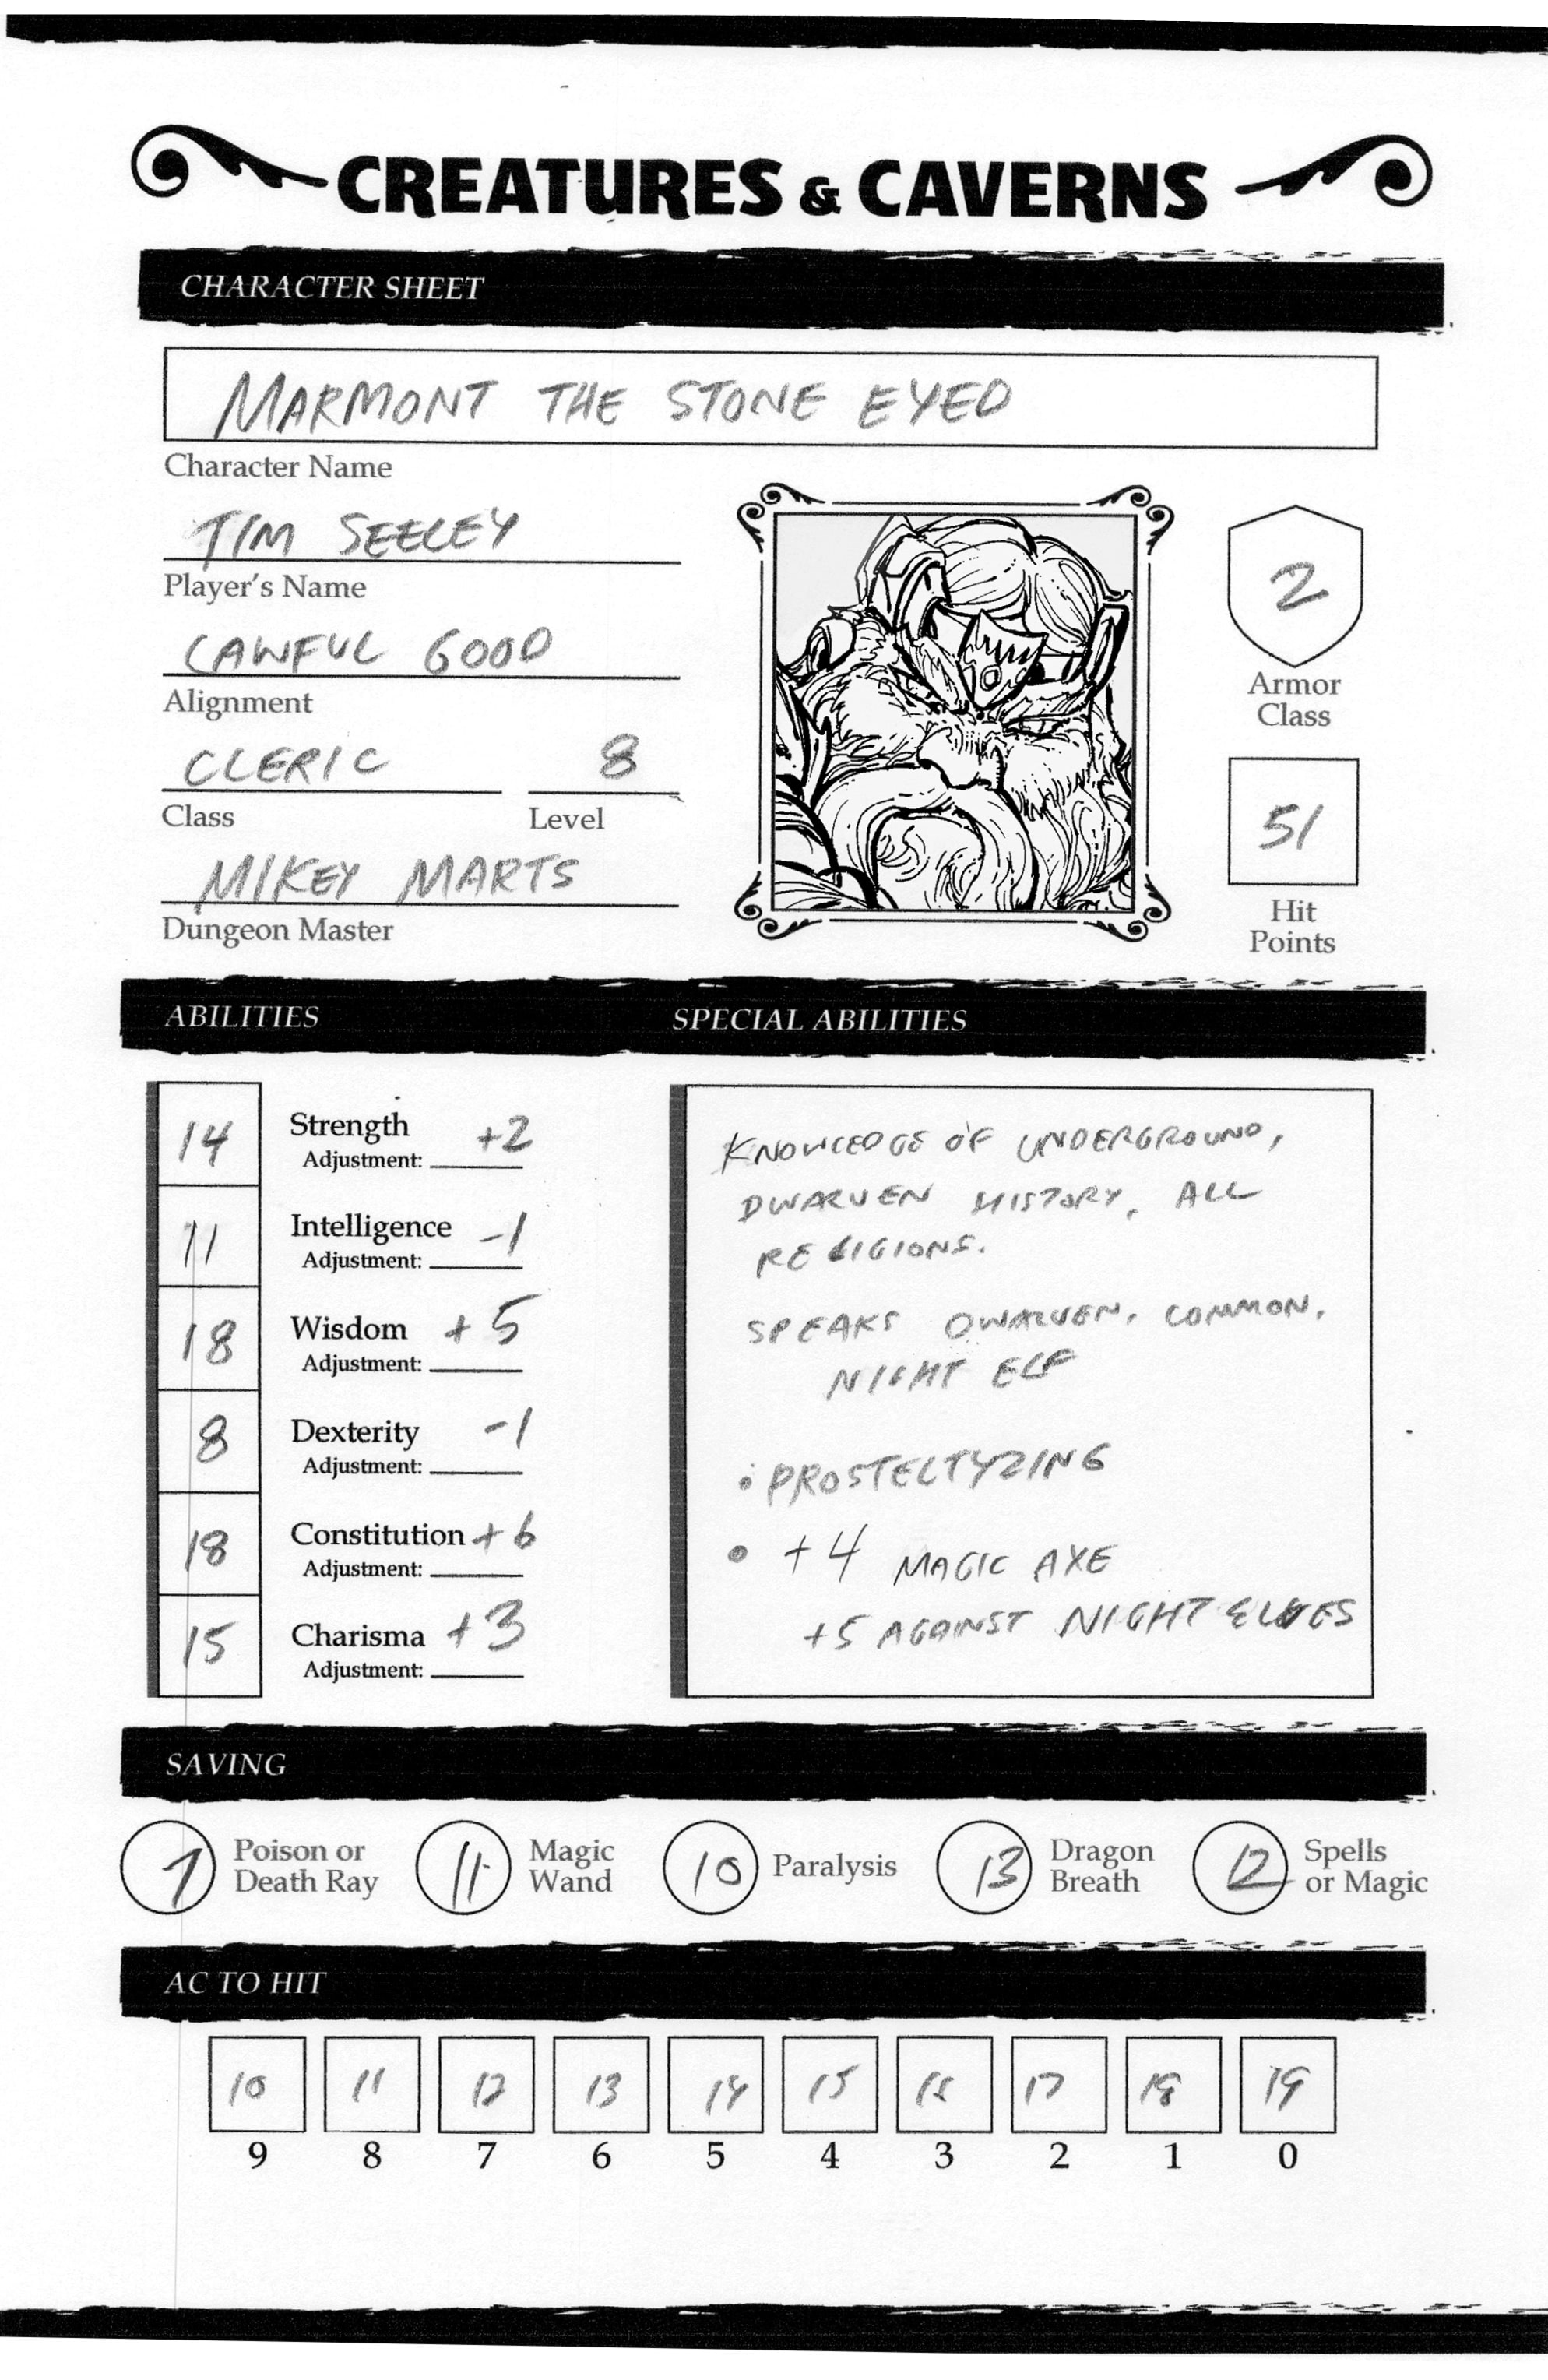 CREATURES & CAVERNS
CHARACTER SHEET
MARMONT THE STONE EYED
Character Name
TIM SEELEY
Player's Name
LAWFUL GOOD
Alignment
CLERIC 8
Class Level
MIKEY MARTS
Dungeon Master
2
Armor
Class
51
Hit
Points
ABILITIES SPECIAL ABILITIES
14 Strength +2
Adjustment:
11 Intelligence -1
Adjustment:
18 Wisdom +5
Adjustment:
8 Dexterity -1
Adjustment:
18 Constitution +6
Adjustment:
15 Charisma +3
Adjustment:
KNOWLEDGE OF UNDERGROUND,
DWARVEN HISTORY, ALL
RELIGIONS.
SPEAKS DWARVEN, COMMON,
NIGHT ELF
• PROSTELTYZING
• +4 MAGIC AXE
+5 AGAINST NIGHT ELVES
SAVING
7 Poison or
Death Ray
11 Magic
Wand
10 Paralysis
13 Dragon
Breath
12 Spells
or Magic
AC TO HIT
10 11 12 13 14 15 17 18 19
9 8 7 6 5 4 3 2 1 0